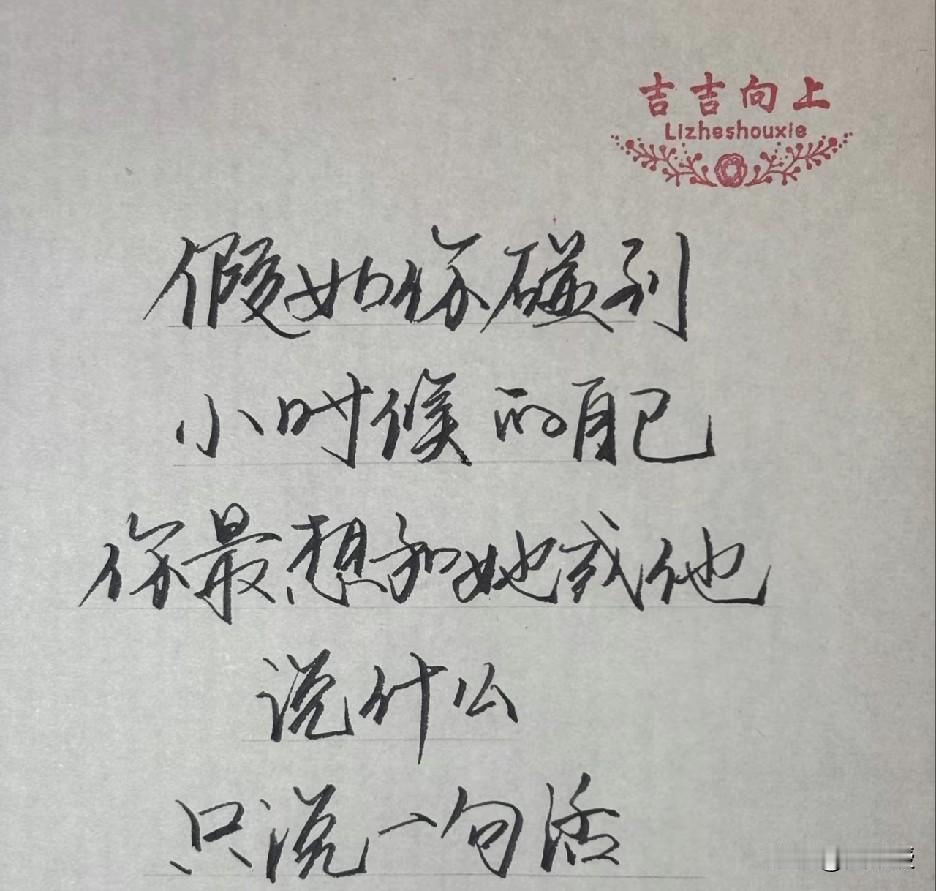 吉吉向上
Lizheshouxie
假如你碰到
小时候的自己
你最想和她或他
说什么
只说一句话